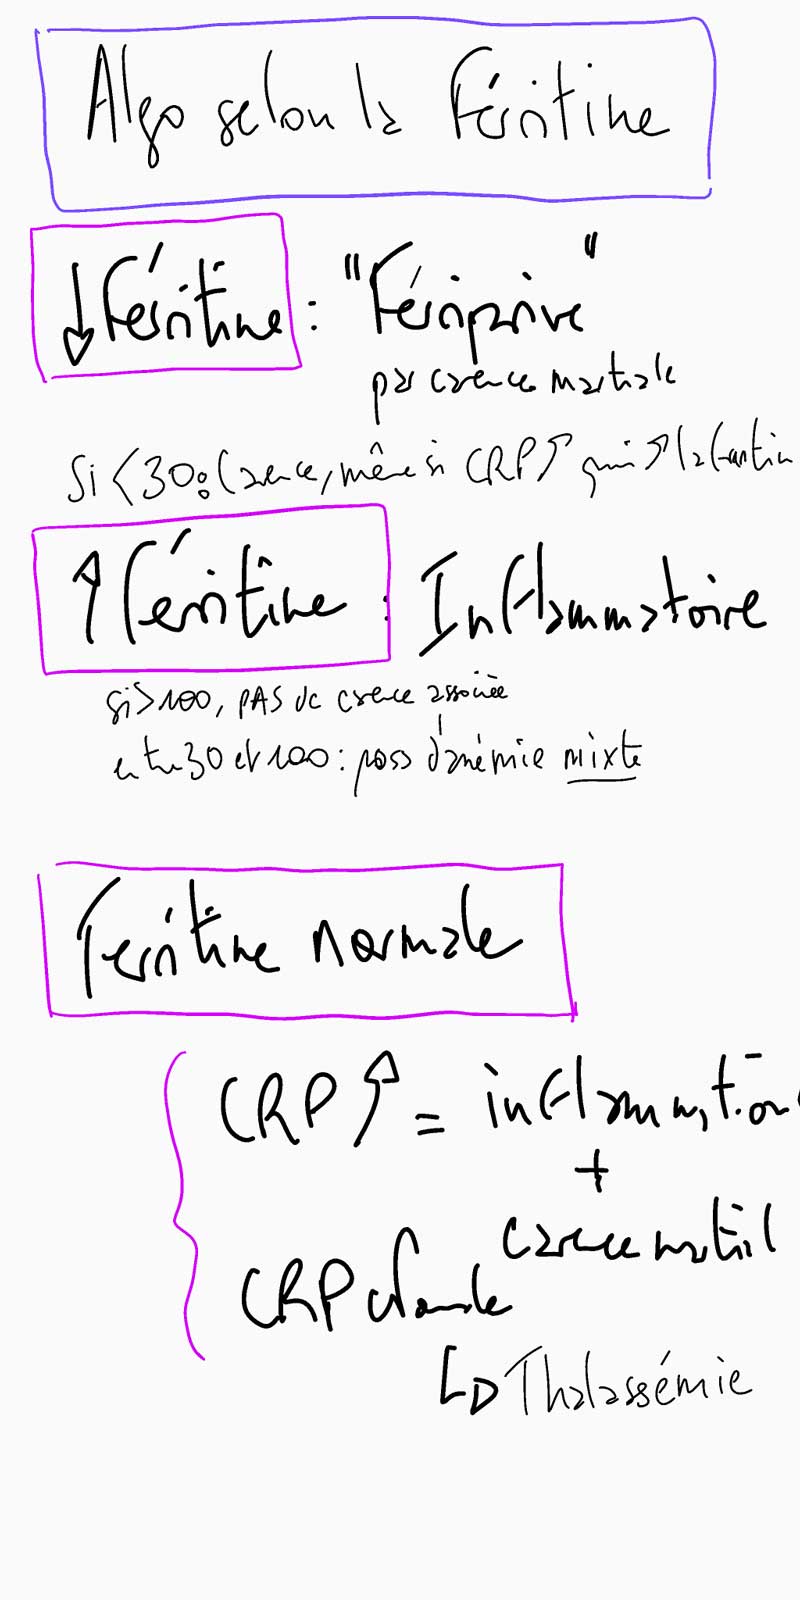 Algo selon la Féritine
↓ Féritine : "Fériprive"
par carence martiale
Si < 30 : Carence, même si CRP ↑ qui ↑ la
↑ Féritine : Inflammatoire
si > 100, PAS de carence associée
entre 30 et 100 : poss d'anémie mixte
Feritine normale
CRP ↑ = inflammation
+
carence martial
CRP normale
↳ Thalassémie